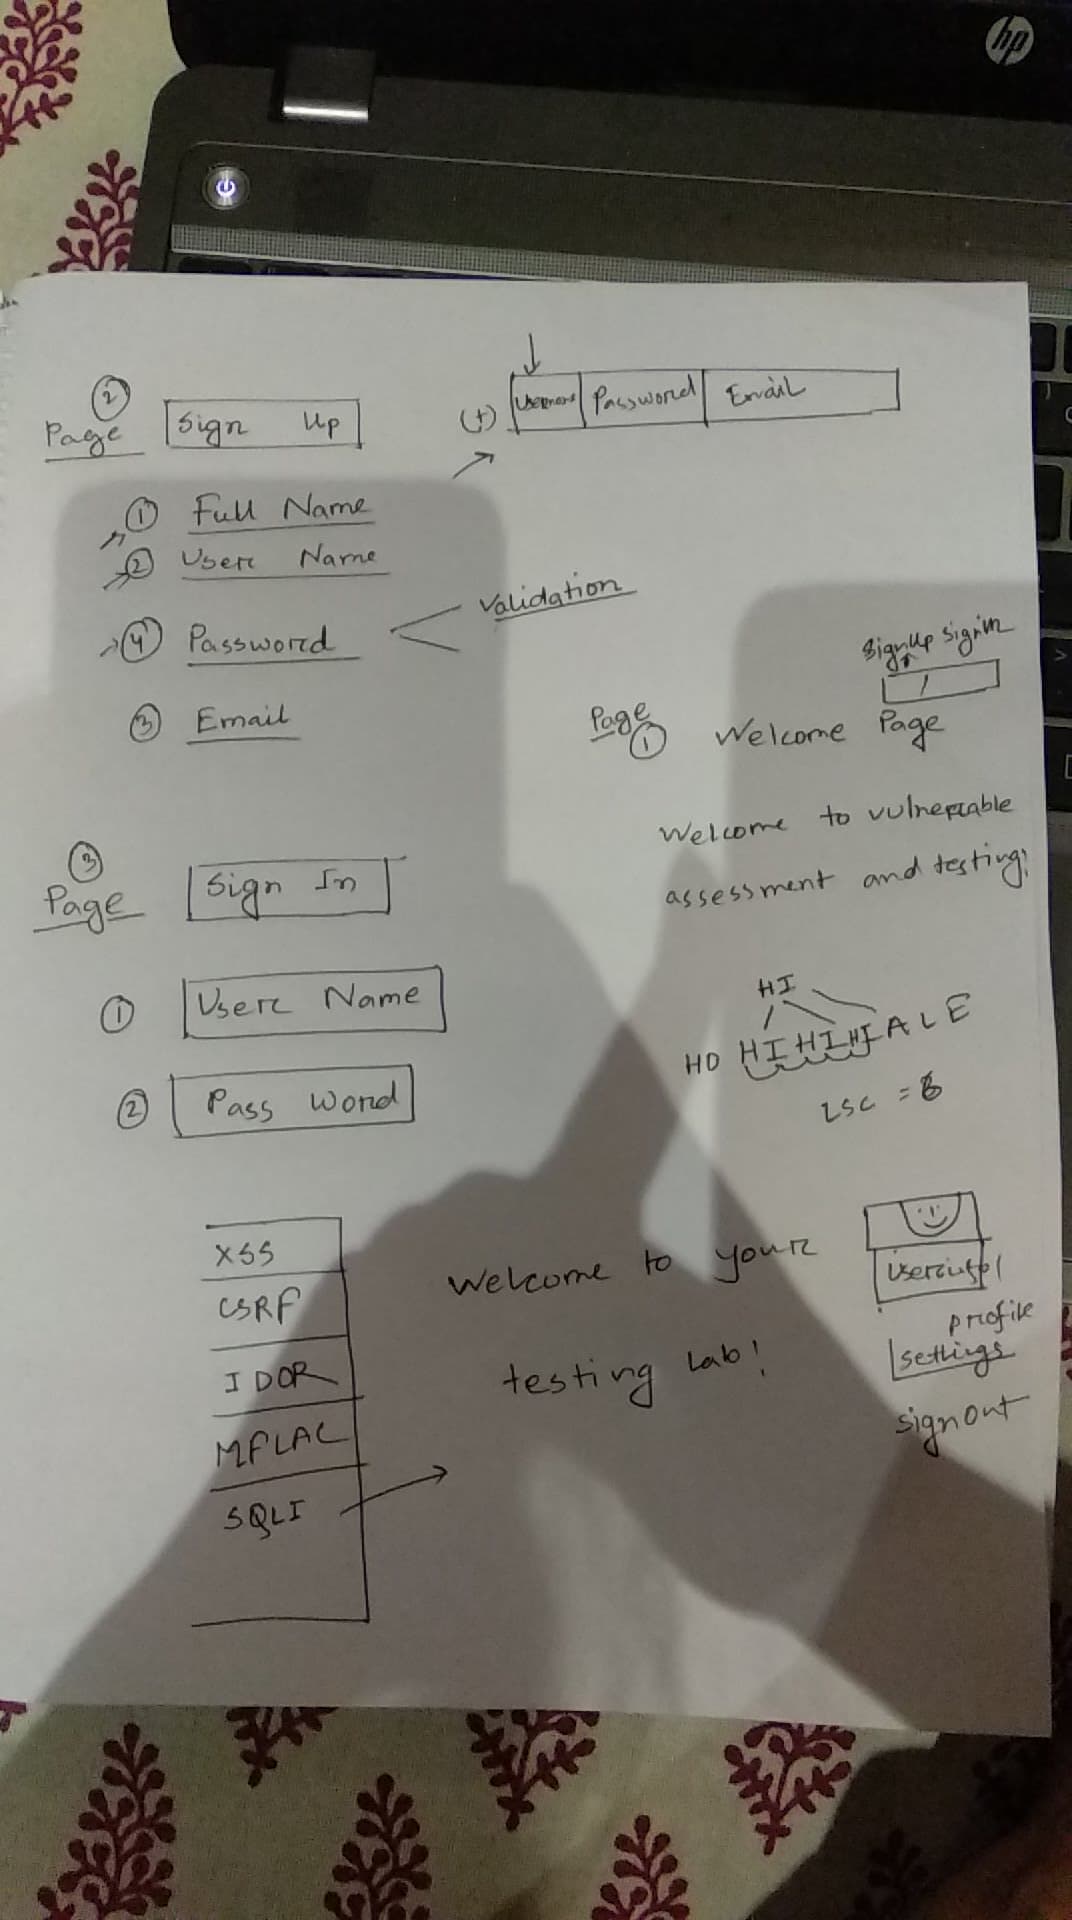 hp
2
Page
Sign Up
(+) Username Password Email
1 Full Name
2 User Name
4 Password
Validation
3 Email
SignUp Signin
Page
1
Welcome Page
Welcome to vulnerable
assessment and testing!
3
Page
Sign In
1 User Name
2 Pass Word
HI
HO HI HI HI ALE
LSC = 6
XSS
CSRF
IDOR
MFLAC
SQLI
Welcome to your
testing Lab!
profile
settings
signout